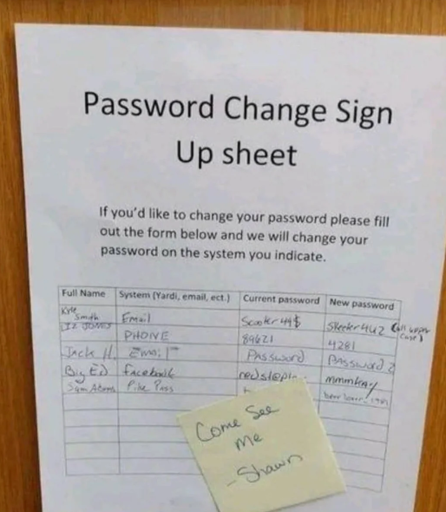 Password Change Sign
Up sheet
If you'd like to change your password please fill
out the form below and we will change your
password on the system you indicate.
Full Name System (Yardi, email, ect.) Current password New password
Kyle Smith Email Scooter44$ Skeeter442 (all upper case)
Liz Jones PHONE 84621 4281
Jack H. Email Password Password 2
Big Ed facebook redstapl mmmkay
Sam Adams Pike Pass
Come See
me
-Shawn